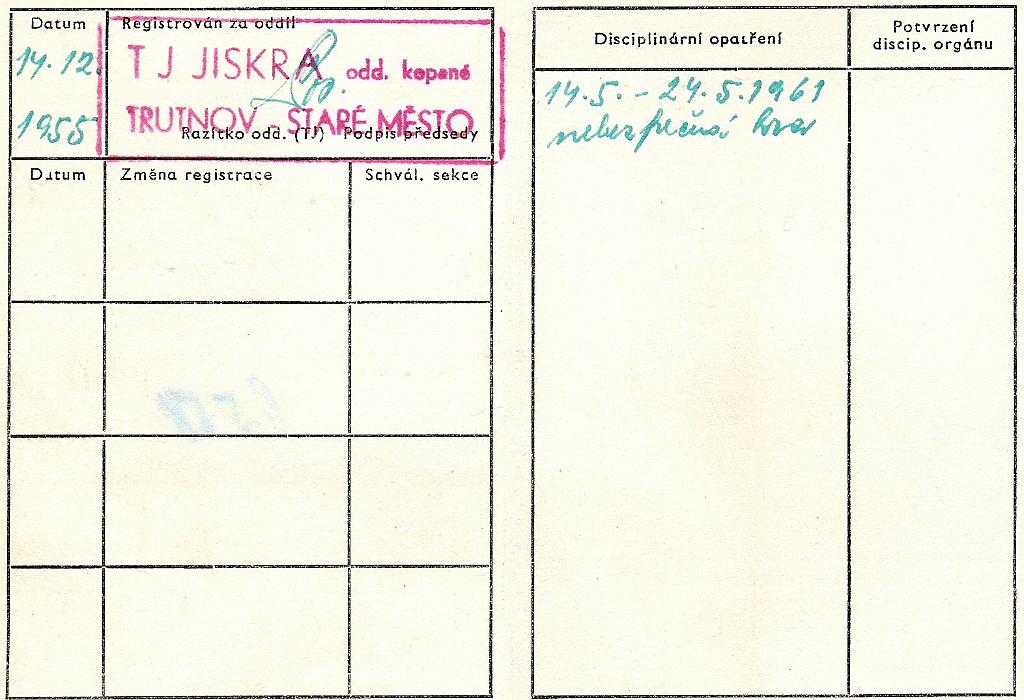 Datum
Registrován za oddíl
14.12.
1955
T J JISKRA odd. kopané
TRUTNOV - STARÉ MĚSTO
Razítko odd. (TJ) Podpis předsedy
Datum
Změna registrace
Schvál. sekce
Disciplinární opatření
Potvrzení
discip. orgánu
14.5. - 24.5.1961
nebezpečná hra